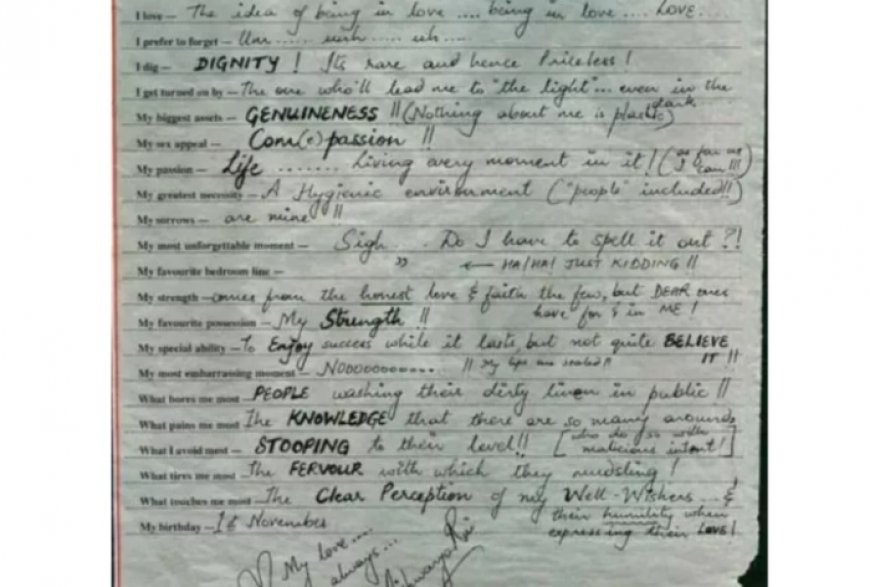 I love — The idea of being in love .... being in love .... LOVE....
I prefer to forget — Um...... uuh..... uh....
I dig — DIGNITY! Its rare and hence Priceless!
I get turned on by — The one who'll lead me to "the light"... even in the dark
My biggest assets — GENUINENESS !! (Nothing about me is plastic)
My sex appeal — Com(e)passion !!
My passion — Life ....... Living every moment in it! (as far as I can!!!)
My greatest necessity — A Hygienic environment ("people" included!!)
My sorrows — are mine !!
My most unforgettable moment — Sigh.. . Do I have to spell it out ?!
My favourite bedroom line — " ← HA!HA! JUST KIDDING !!
My strength — comes from the honest love & faith the few, but DEAR ones
have for & in ME!
My favourite possession — My Strength !!
My special ability — to Enjoy success while it lasts but not quite BELIEVE
IT !!
My most embarrassing moment — Noooooooooo.... !! My lips are sealed!!
What bores me most PEOPLE washing their dirty linen in public !!
What pains me most The KNOWLEDGE that there are so many around,
What I avoid most — STOOPING to their level!! [who do so with
malicious intent!]
What tires me most The FERVOUR with which they mudsling!
What touches me most The Clear Perception of my Well-Wishers ... &
their humility when
My birthday — 1st November
expressing their LOVE!
My love....
always...
Aishwarya Rai